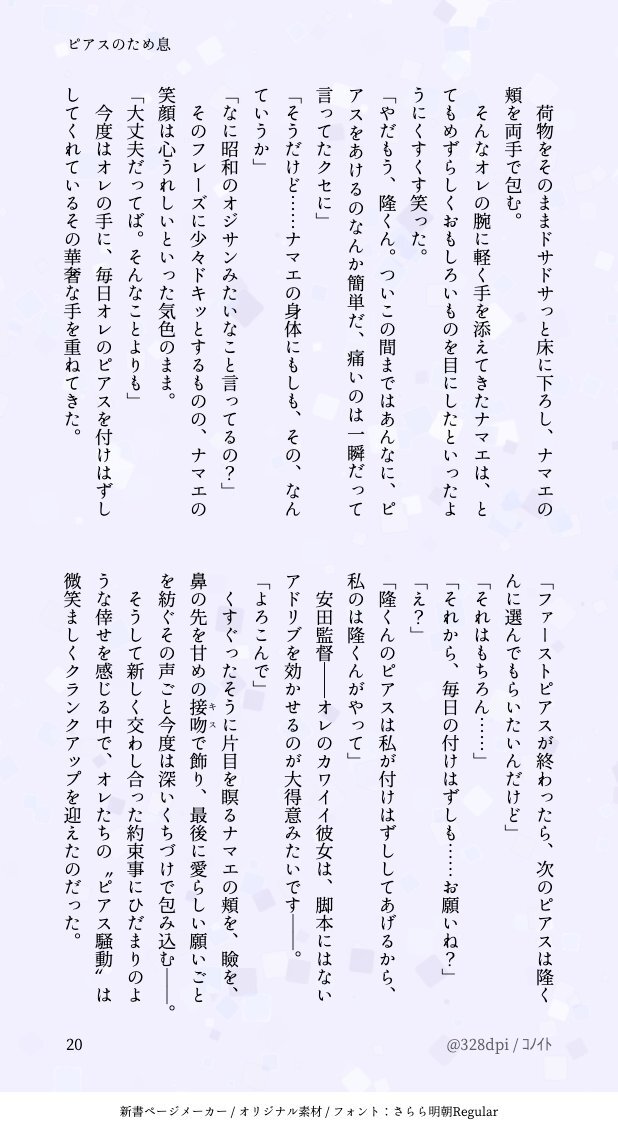 ピアスのため息
　荷物をそのままドサドサっと床に下ろし、ナマエの
頬を両手で包む。
　そんなオレの腕に軽く手を添えてきたナマエは、と
てもめずらしくおもしろいものを目にしたといったよ
うにくすくす笑った。
「やだもう、隆くん。ついこの間まではあんなに、ピ
アスをあけるのなんか簡単だ、痛いのは一瞬だって
言ってたクセに」
「そうだけど……ナマエの身体にもしも、その、なん
ていうか」
「なに昭和のオジサンみたいなこと言ってるの？」
　そのフレーズに少々ドキッとするものの、ナマエの
笑顔は心うれしいといった気色のまま。
「大丈夫だってば。そんなことよりも」
　今度はオレの手に、毎日オレのピアスを付けはずし
してくれているその華奢な手を重ねてきた。
「ファーストピアスが終わったら、次のピアスは隆く
んに選んでもらいたいんだけど」
「それはもちろん……」
「それから、毎日の付けはずしも……お願いね？」
「え？」
「隆くんのピアスは私が付けはずししてあげるから、
私のは隆くんがやって」
　安田監督――オレのカワイイ彼女は、脚本にはない
アドリブを効かせるのが大得意みたいです――。
「よろこんで」
　くすぐったそうに片目を瞑るナマエの頬を、瞼を、
鼻の先を甘めの接吻キスで飾り、最後に愛らしい願いごと
を紡ぐその声ごと今度は深いくちづけで包み込む――。
　そうして新しく交わし合った約束事にひだまりのよ
うな倖せを感じる中で、オレたちの〝ピアス騒動〟は
微笑ましくクランクアップを迎えたのだった。
20
@328dpi / ｺﾉｲﾄ
新書ページメーカー / オリジナル素材 / フォント：さらら明朝Regular